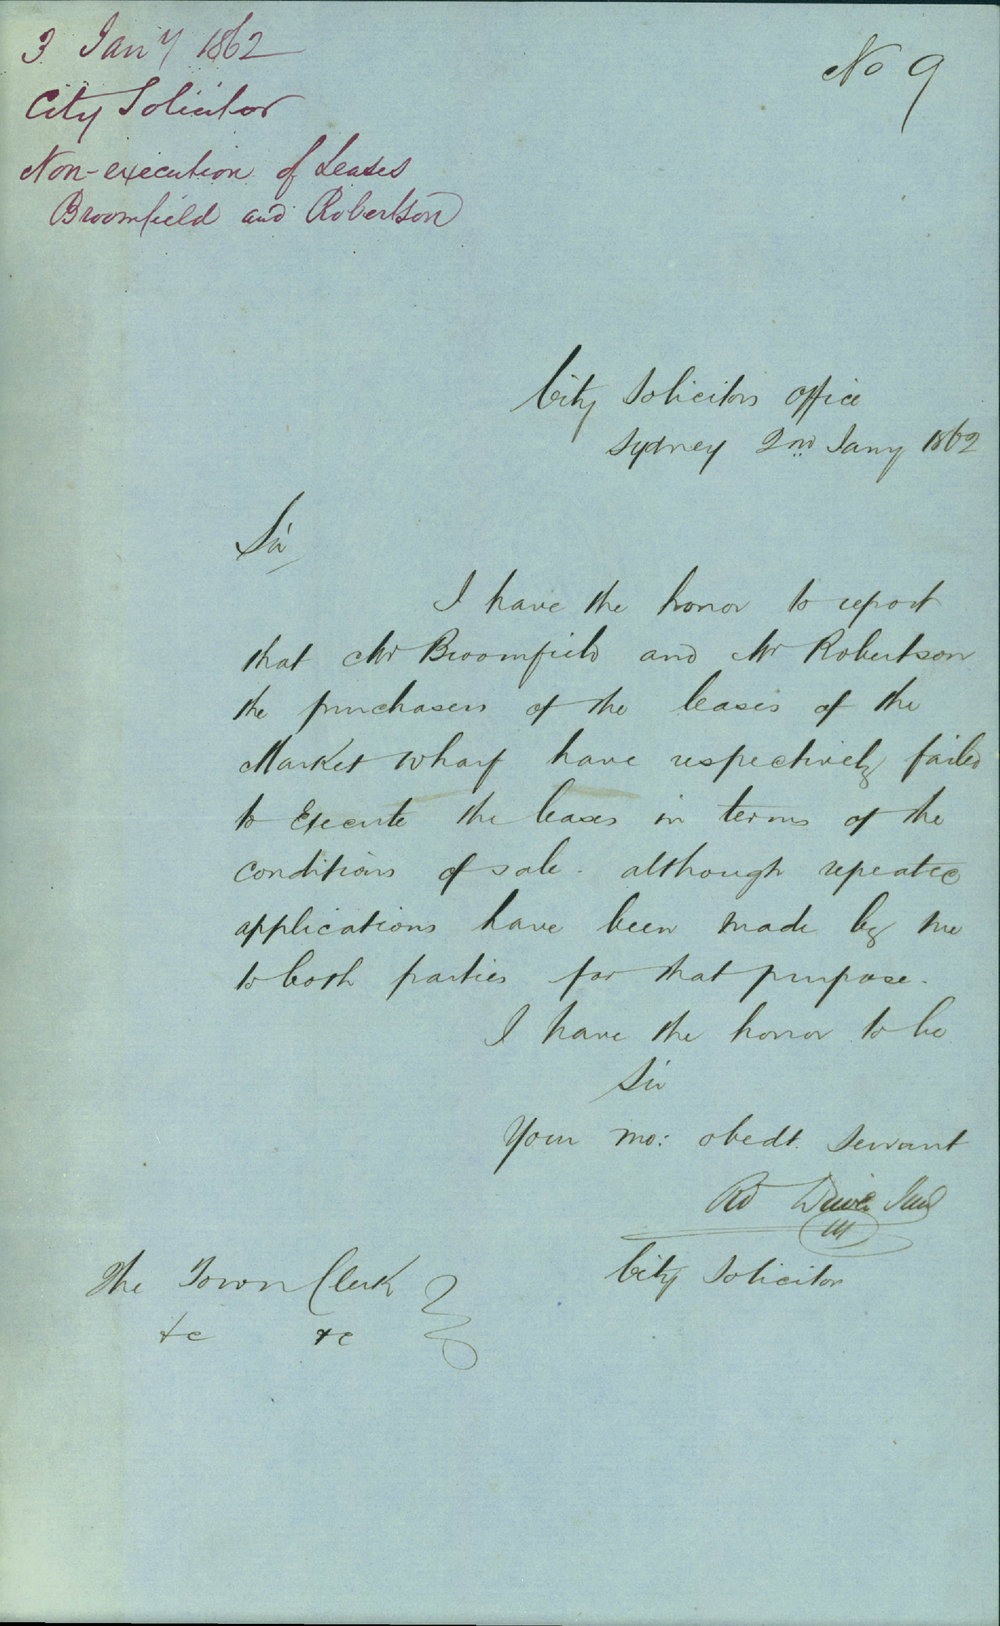 3 Jany 1862
No 9
City Solicitor
Non-execution of Leases
Broomfield and Robertson
City Solicitors Office
Sydney 2nd Jany 1862
Sir
I have the honor to report
that Mr Broomfield and Mr Robertson
the purchasers of the leases of the
Market Wharf have respectively failed
to Execute the leases in terms of the
conditions of sale. although repeated
applications have been made by me
to both parties for that purpose.
I have the honor to be
Sir
Your mo: obedt. Servant
Rd Driver Junr
City Solicitor
The Town Clerk
&c &c